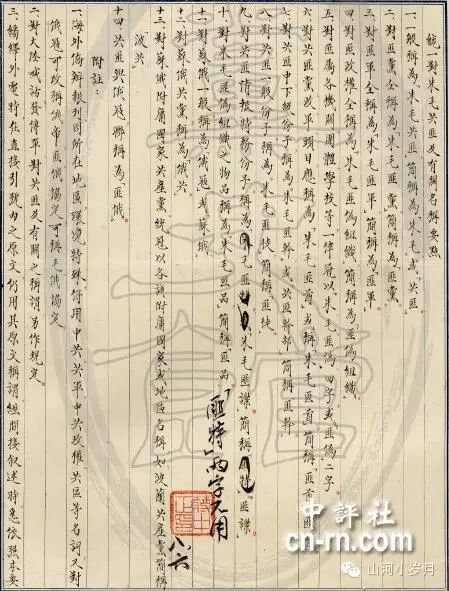 統一對朱毛共匪及有關名稱要點
一、一般稱為「朱毛共匪」簡稱為「朱毛」或「共匪」
二、對匪黨全稱為「朱毛匪黨」簡稱為「匪黨」
三、對匪軍全稱為「朱毛匪軍」簡稱為「匪軍」
四、對匪政權全稱為「朱毛匪偽組織」簡稱為「匪偽組織」
五、對匪屬各機關團體學校等一律冠以「朱毛匪偽」四字或「匪偽」二字
六、對共匪黨政軍頭目應稱為「朱毛匪酋」或稱「朱毛匪首」簡稱「匪酋」「匪首」
七、對共匪中下級份子稱為「朱毛匪幹」或「共匪幹部」簡稱「匪幹」
八、對共匪一般份子稱為「朱毛匪徒」簡稱「匪徒」
九、對共匪情報特務份子稱為 朱毛匪諜 簡稱 匪諜
十、對朱毛匪偽組織之物品稱為「朱毛匪品」簡稱「匪品」
十一、對蘇俄一般稱為「俄寇」或「蘇俄」
十二、對蘇俄共黨稱為「俄共」
十三、對蘇俄附庸國家共產黨統冠以各該附庸國家或地區名稱如「波蘭共產黨」簡稱
「波共」
十四、共匪與俄寇聯稱為「匪俄」
附註：
一、海外僑辦報刊因所在地區環境特殊得用「中共」「共軍」「中共政權」「共區」等名詞又對
「俄寇」可改稱「俄帝」「匪俄協定」可稱「毛俄協定」
二、對大陸喊話發傳單對共匪及有關之稱謂另作規定
三、繙繹外電時在直接引號內之原文仍用其原文稱謂經間接叙述時急依照本要
「匪特」兩字不用
八、六
中評社
cn.crntt.com
山河小岁月